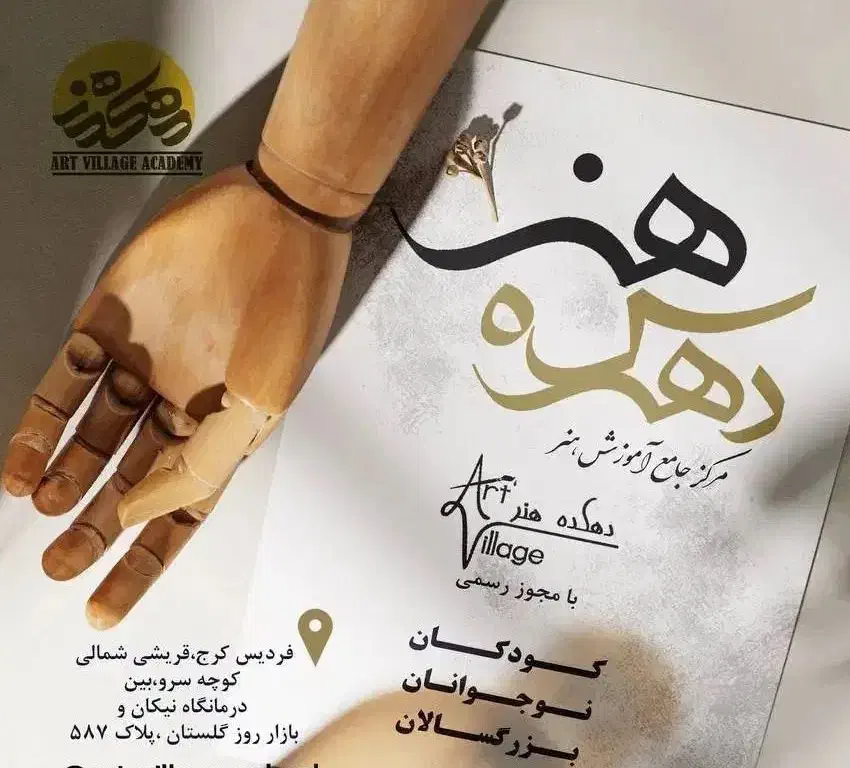 دهکده هنر
ART VILLAGE ACADEMY
هنر
دهکده
مرکز جامع آموزش هنر
Art
دهکده هنر
Village
با مجوز رسمی
کودکان
نوجوانان
بزرگسالان
فردیس کرج،قریشی شمالی
کوچه سرو،بین
درمانگاه نیکان و
بازار روز گلستان ،پلاک ۵۸۷